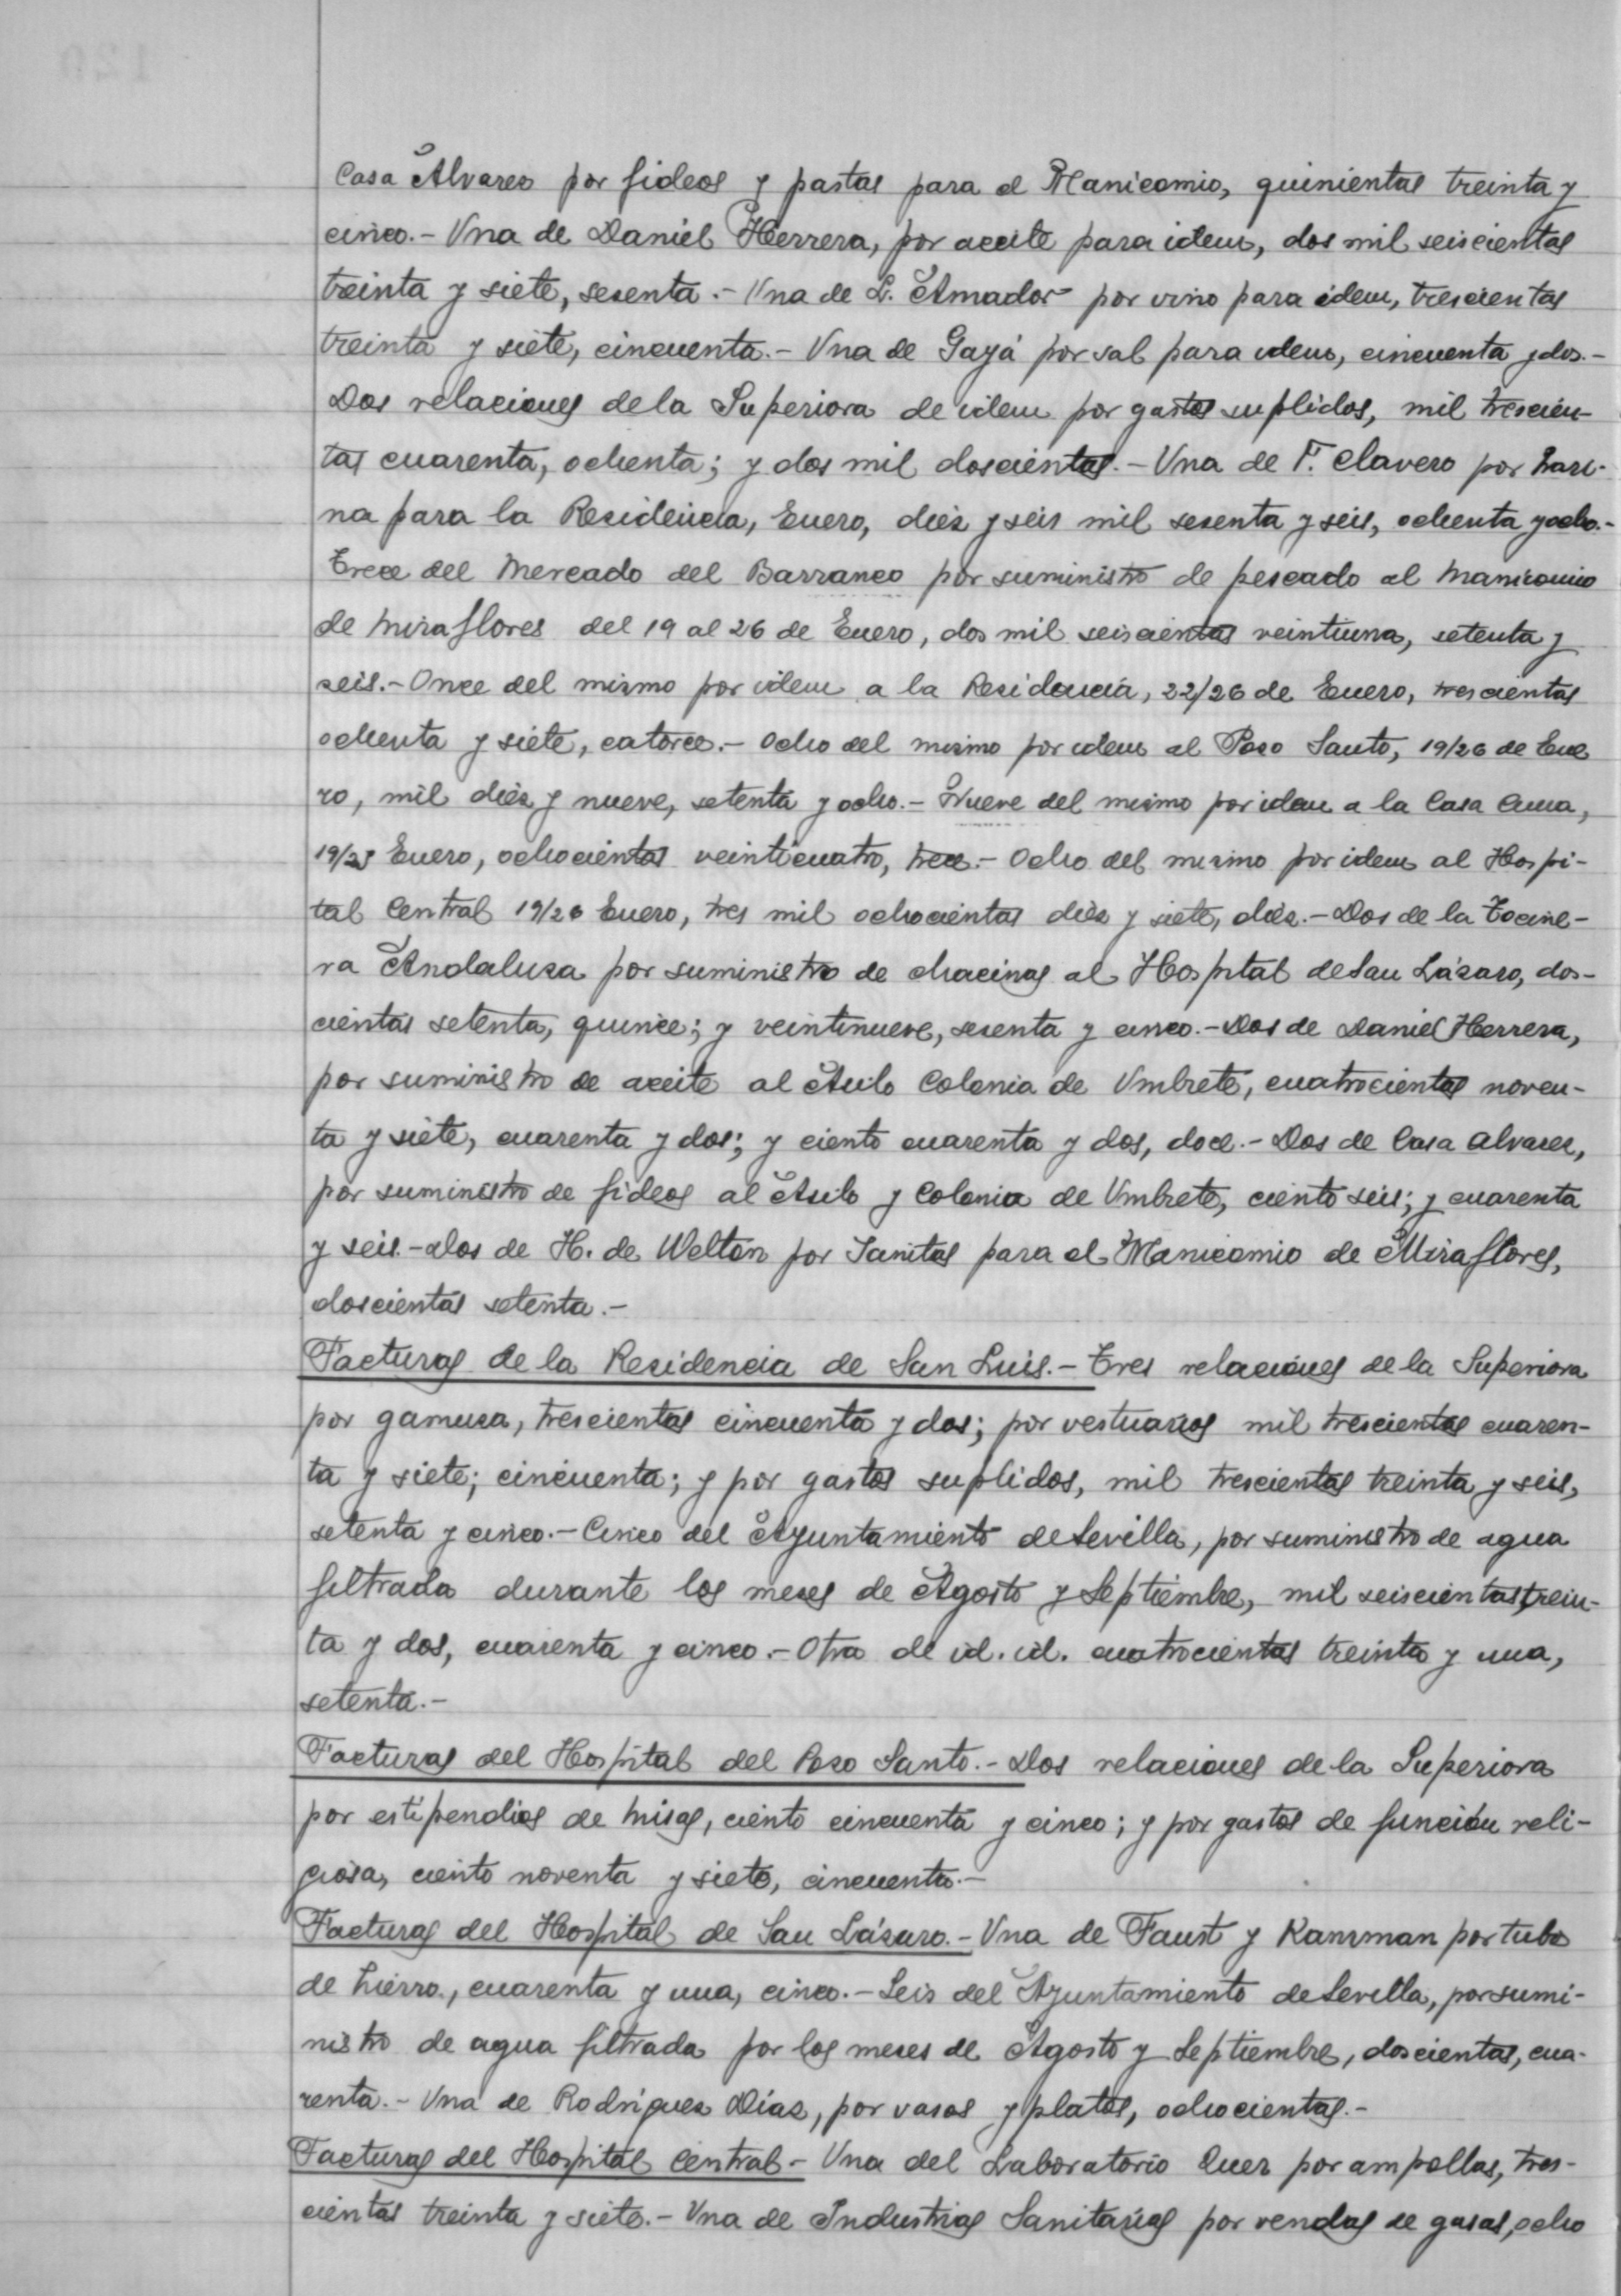 Casa Alvarez por fideos y pastas para el Manicomio, quinientas treinta y
cinco.- Una de Daniel Herrera, por aceite para idem, dos mil seiscientas
treinta y siete, sesenta.- Una de L. Amador por vino para idem, trescientas
treinta y siete, cincuenta.- Una de Gayá por sal para idem, cincuenta y dos.-
Dos relaciones de la Superiora de idem por gastos suplidos, mil trescien-
tas cuarenta, ochenta; y dos mil doscientas.- Una de F. Clavero por hari-
na para la Residencia, Enero, diez y seis mil sesenta y seis, ochenta y ocho.-
Trece del Mercado del Barranco por suministro de pescado al Manicomio
de Miraflores del 19 al 26 de Enero, dos mil seiscientas veintiuna, setenta y
seis.- Once del mismo por idem a la Residencia, 22/26 de Enero, trescientas
ochenta y siete, catorce.- Ocho del mismo por idem al Pozo Santo, 19/26 de Ene
ro, mil diez y nueve, setenta y ocho.- Nueve del mismo por idem a la Casa Cuna,
19/25 Enero, ochocientas veinticuatro, trece.- Ocho del mismo por idem al Hospi-
tal Central 19/26 Enero, tres mil ochocientas diez y siete, diez.- Dos de la Tocine-
ra Andaluza por suministro de chacinas al Hospital de San Lázaro, dos-
cientas setenta, quince; y veintinueve, sesenta y cinco.- Dos de Daniel Herrera,
por suministro de aceite al Asilo Colonia de Umbrete, cuatrocientas noven-
ta y siete, cuarenta y dos; y ciento cuarenta y dos, doce.- Dos de Casa Alvarez,
por suministro de fideos al Asilo y Colonia de Umbrete, ciento seis; y cuarenta
y seis.- Dos de H. de Welton por Sanitas para el Manicomio de Miraflores,
doscientas setenta.-
Facturas de la Residencia de San Luis.- Tres relaciones de la Superiora
por gamuza, trescientas cincuenta y dos; por vestuarios mil trescientas cuaren-
ta y siete; cincuenta; y por gastos suplidos, mil trescientas treinta y seis,
setenta y cinco.- Cinco del Ayuntamiento de Sevilla, por suministro de agua
filtrada durante los meses de Agosto y Septiembre, mil seiscientas trein-
ta y dos, cuarenta y cinco.- Otra de id. id. cuatrocientas treinta y una,
setenta.-
Facturas del Hospital del Pozo Santo.- Dos relaciones de la Superiora
por estipendios de misas, ciento cincuenta y cinco; y por gastos de función reli-
giosa, ciento noventa y siete, cincuenta.-
Facturas del Hospital de San Lázaro.- Una de Faust y Kanzman por tubo
de hierro, cuarenta y una, cinco.- Seis del Ayuntamiento de Sevilla, por sumi-
nistro de agua filtrada por los meses de Agosto y Septiembre, doscientas, cua-
renta.- Una de Rodríguez Díaz, por vasos y platos, ochocientas.-
Facturas del Hospital Central- Una del Laboratorio Quer por ampollas, tres-
cientas treinta y siete.- Una de Industrias Sanitarias por vendas de gasas, ocho